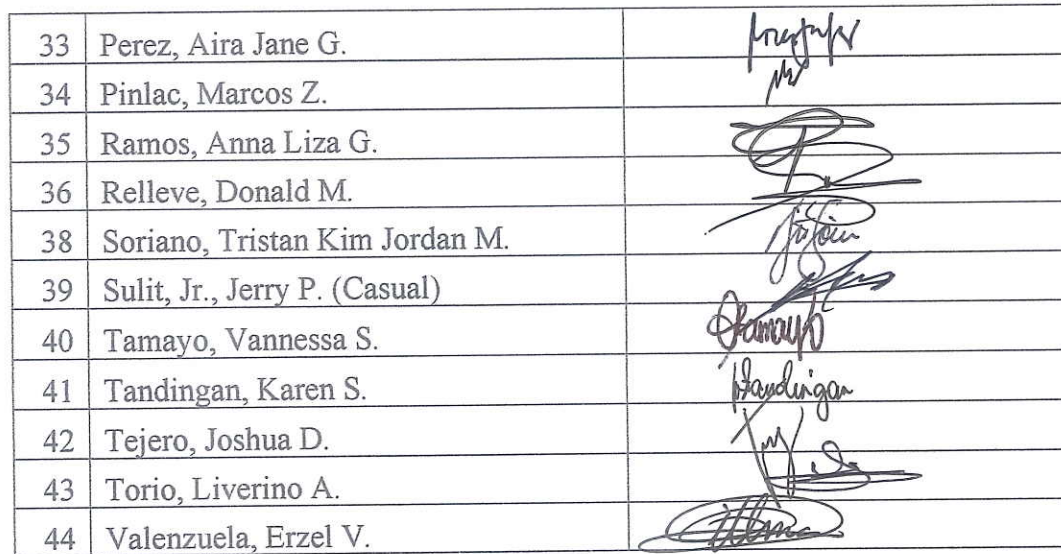 33 Perez, Aira Jane G.
34 Pinlac, Marcos Z.
35 Ramos, Anna Liza G.
36 Relleve, Donald M.
38 Soriano, Tristan Kim Jordan M.
39 Sulit, Jr., Jerry P. (Casual)
40 Tamayo, Vannessa S.
41 Tandingan, Karen S.
42 Tejero, Joshua D.
43 Torio, Liverino A.
44 Valenzuela, Erzel V.